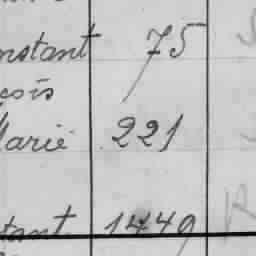 nstant 75
çois
Marie 221
tant 1449